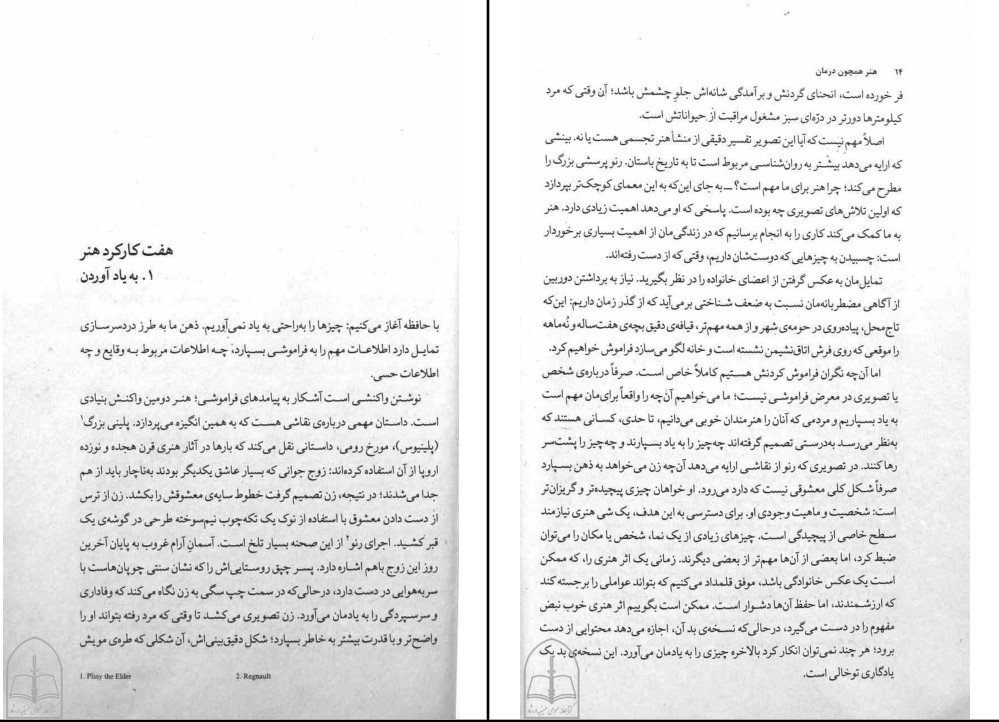 هفت کارکرد هنر
۱. به یاد آوردن
با حافظه آغاز می‌کنیم: چیزها را به‌راحتی به یاد نمی‌آوریم. ذهن ما به طرز دردسرسازی
تمایل دارد اطلاعات مهم را به فراموشی بسپارد، چه اطلاعات مربوط به وقایع و چه
اطلاعات حسی.
نوشتن واکنشی است آشکار به پیامدهای فراموشی؛ هنر دومین واکنش بنیادی
است. داستان مهمی درباره‌ی نقاشی هست که به همین انگیزه می‌پردازد. پلینی بزرگ۱
(پلینیوس)، مورخ رومی، داستانی نقل می‌کند که بارها در آثار هنری قرن هجده و نوزده
اروپا از آن استفاده کرده‌اند: زوج جوانی که بسیار عاشق یکدیگر بودند به‌ناچار باید از هم
جدا می‌شدند؛ در نتیجه، زن تصمیم گرفت خطوط سایه‌ی معشوقش را بکشد. زن از ترس
از دست دادن معشوق با استفاده از نوک یک تکه‌چوب نیم‌سوخته طرحی در گوشه‌ی یک
قبر کشید. اجرای رنو۲ از این صحنه بسیار تلخ است. آسمانِ آرام غروب به پایان آخرین
روز این زوج باهم اشاره دارد. پسر چپق روستایی‌اش را که نشان سنتی چوپان‌هاست با
سربه‌هوایی در دست دارد، درحالی‌که در سمت چپ سگی به زن نگاه می‌کند که وفاداری
و سرسپردگی را به یادمان می‌آورد. زن تصویری می‌کشد تا وقتی که مرد رفته بتواند او را
واضح‌تر و با قدرت بیشتر به خاطر بسپارد؛ شکل دقیق بینی‌اش، آن شکلی که طره‌ی مویش
1. Pliny the Elder 2. Regnault
۱۴ هنر همچون درمان
فر خورده است، انحنای گردنش و برآمدگی شانه‌اش جلوِ چشمش باشد؛ آن وقتی که مرد
کیلومترها دورتر در دژه‌ای سبز مشغول مراقبت از حیواناتش است.
اصلاً مهم نیست که آیا این تصویر تفسیر دقیقی از منشأ هنر تجسمی هست یا نه. بینشی
که ارایه می‌دهد بیشتر به روان‌شناسی مربوط است تا به تاریخ باستان. رنو پرسشی بزرگ را
مطرح می‌کند؛ چرا هنر برای ما مهم است؟ ــ به جای این‌که به این معمای کوچک‌تر بپردازد
که اولین تلاش‌های تصویری چه بوده است. پاسخی که او می‌دهد اهمیت زیادی دارد. هنر
به ما کمک می‌کند کاری را به انجام برسانیم که در زندگی‌مان از اهمیت بسیاری برخوردار
است: چسبیدن به چیزهایی که دوست‌شان داریم، وقتی که از دست رفته‌اند.
تمایل‌مان به عکس گرفتن از اعضای خانواده را در نظر بگیرید. نیاز به برداشتن دوربین
از آگاهی مضطربانه‌مان نسبت به ضعف شناختی برمی‌آید که از گذر زمان داریم: این‌که
تاج‌محل، پیاده‌روی در حومه‌ی شهر و از همه مهم‌تر، قیافه‌ی دقیق بچه‌ی هفت‌ساله و نُه‌ماهه
را موقعی که روی فرش اتاق‌نشیمن نشسته است و خانه لگو می‌سازد فراموش خواهیم کرد.
اما آن‌چه نگران فراموش کردنش هستیم کاملاً خاص است. صرفاً درباره‌ی شخص
یا تصویری در معرض فراموشی نیست؛ ما می‌خواهیم آن‌چه را واقعاً برای‌مان مهم است
به یاد بسپاریم و مردمی که آنان را هنرمندان خوبی می‌دانیم، تا حدی، کسانی هستند که
به‌نظر می‌رسد به‌درستی تصمیم گرفته‌اند چه‌چیز را به یاد بسپارند و چه‌چیز را پشت‌سر
رها کنند. در تصویری که رنو از نقاشی ارایه می‌دهد آن‌چه زن می‌خواهد به ذهن بسپارد
صرفاً شکل کلی معشوقی نیست که دارد می‌رود. او خواهان چیزی پیچیده‌تر و گریزان‌تر
است: شخصیت و ماهیت وجودی او. برای دسترسی به این هدف، یک شی هنری نیازمند
سطح خاصی از پیچیدگی است. چیزهای زیادی از یک نما، شخص یا مکان را می‌توان
ضبط کرد، اما بعضی از آن‌ها مهم‌تر از بعضی دیگرند. زمانی یک اثر هنری را، که ممکن
است یک عکس خانوادگی باشد، موفق قلمداد می‌کنیم که بتواند عواملی را برجسته کند
که ارزشمندند، اما حفظ آن‌ها دشوار است. ممکن است بگوییم اثر هنری خوب نبض
مفهوم را در دست می‌گیرد، درحالی‌که نسخه‌ی بد آن، اجازه می‌دهد محتوایی از دست
برود؛ هر چند نمی‌توان انکار کرد بالاخره چیزی را به یادمان می‌آورد. این نسخه‌ی بد یک
یادگاری توخالی است.